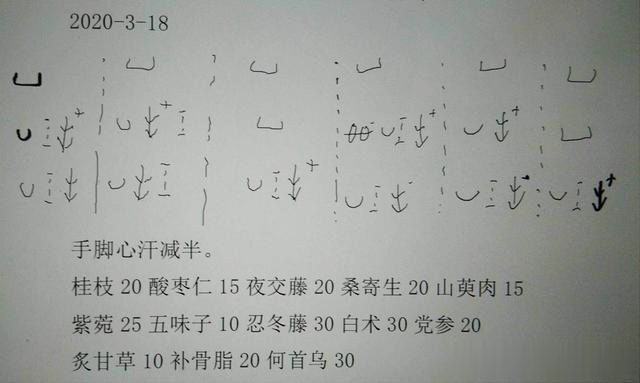 2020-3-18
手脚心汗减半。
桂枝 20 酸枣仁 15 夜交藤 20 桑寄生 20 山萸肉 15
紫菀 25 五味子 10 忍冬藤 30 白术 30 党参 20
炙甘草 10 补骨脂 20 何首乌 30